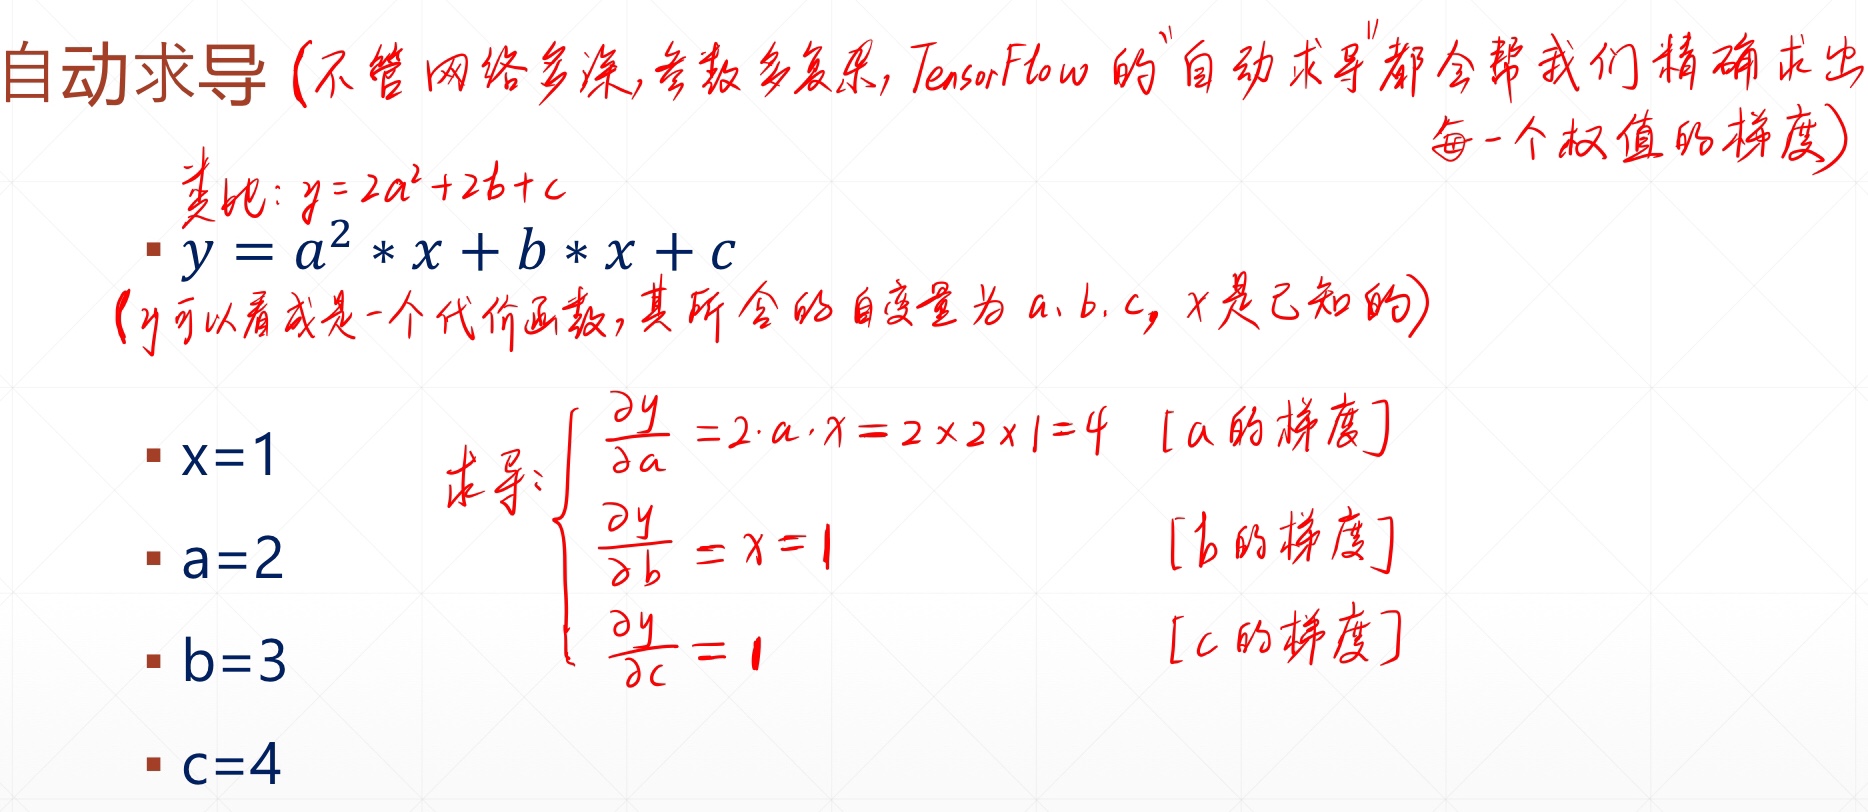 自动求导 (不管网络多深,参数多复杂,TensorFlow 的"自动求导"都会帮我们精确求出
每一个权值的梯度)
类比: y=2a²+2b+c
▪ y = a² * x + b * x + c
(y可以看成是一个代价函数,其所含的自变量为 a、b、c, x是已知的)
▪ x=1
▪ a=2
▪ b=3
▪ c=4
求导:
∂y/∂a =2·a·x=2×2×1=4 [a的梯度]
∂y/∂b =x=1 [b的梯度]
∂y/∂c =1 [c的梯度]